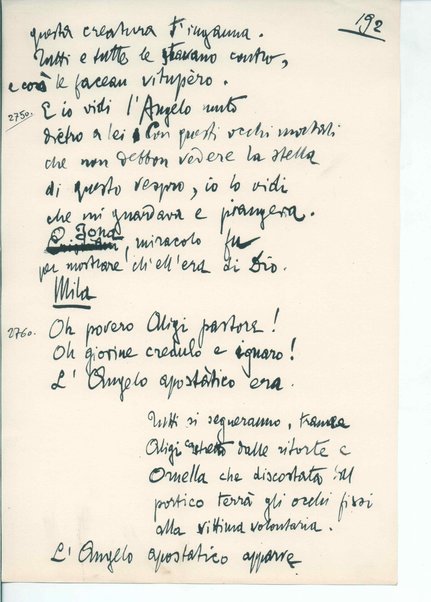 192
questa creatura t'inganna.
Tutti e tutte le stavano contro,
e così le facean vitupèro.
2750. E io vidi l'Angelo muto
dietro a lei. Con questi occhi mortali
che non debbon vedere la stella
di questo vespro, io lo vidi
che mi guardava e piangeva.
O Iona, miracolo fu
per mostrare ch'ell'era di Dio.
Mila
2760. Oh povero Aligi pastore!
Oh giovine credulo e ignaro!
L'Angelo apostàtico era.
Tutti si segneranno, tranne
Aligi costretto dalle ritorte e
Ornella che discostata dal
portico terrà gli occhi fissi
alla vittima volontaria.
L'Angelo apostatico apparve